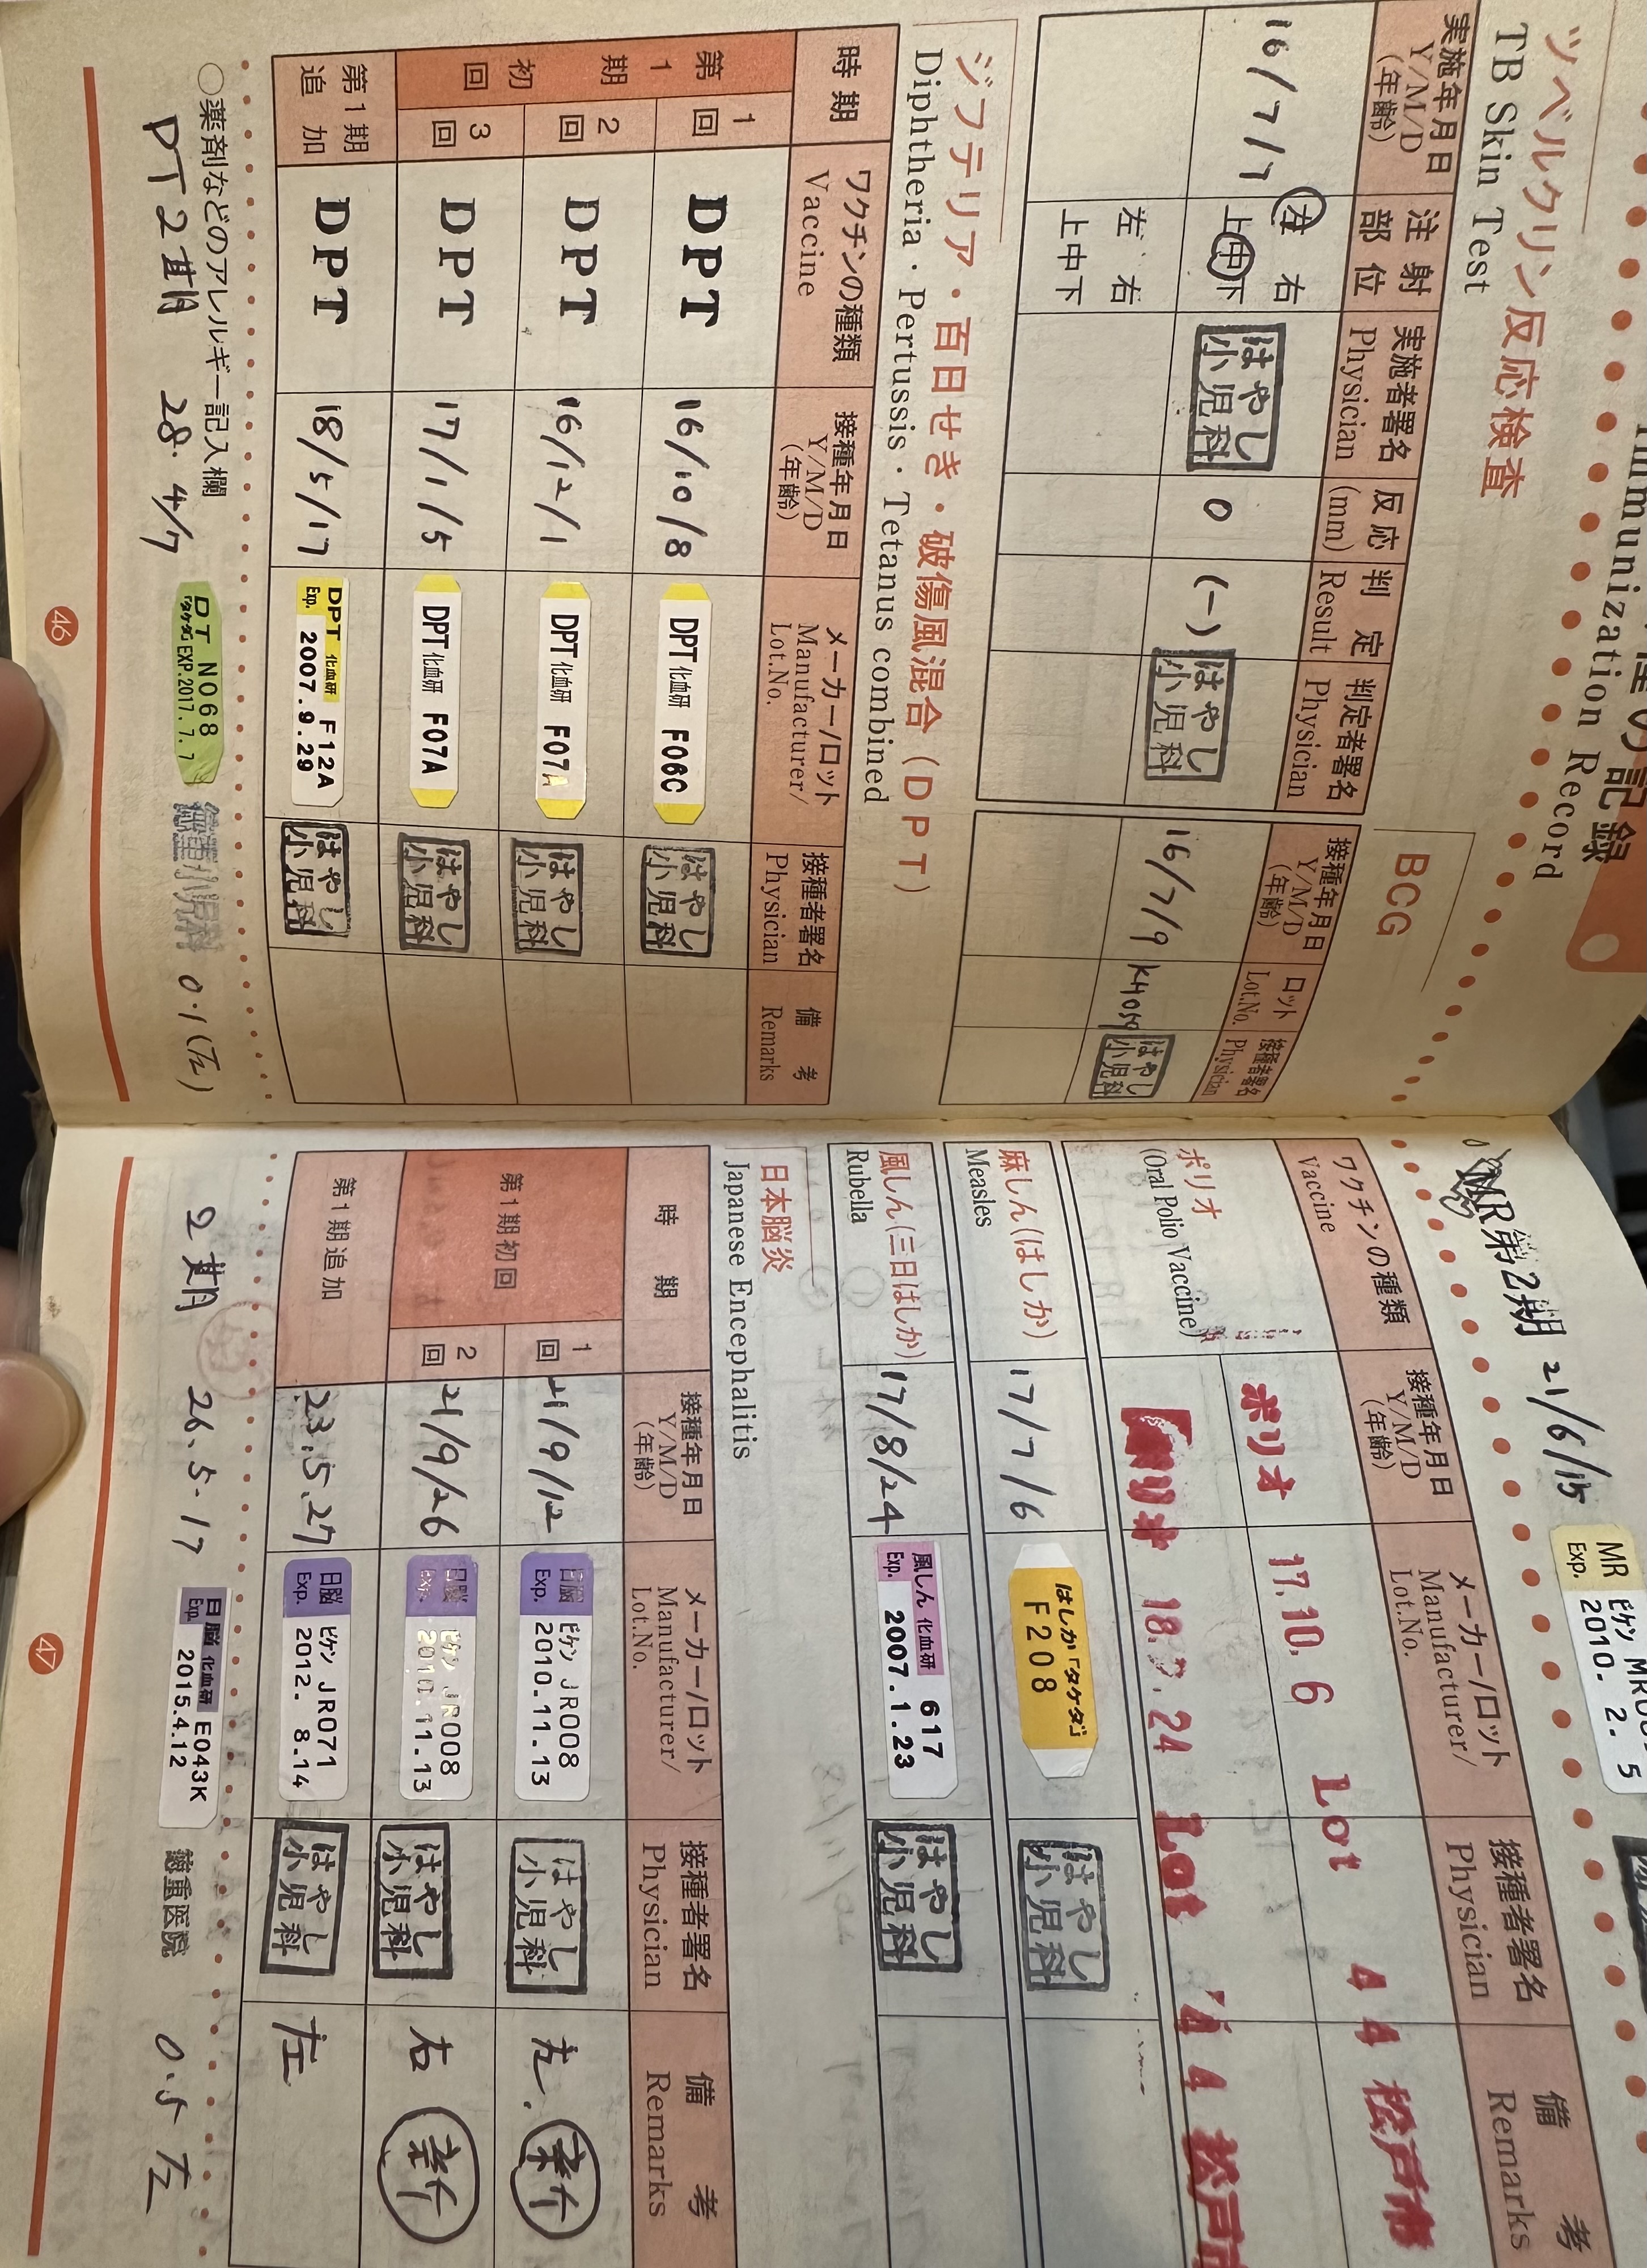 の記録
Immunization Record
ツベルクリン反応検査
TB Skin Test
実施年月日 Y/M/D (年齢)
注射部位
実施者署名 Physician
反応 (mm)
判定 Result
判定者署名 Physician
16/7/7
左 右
上中下
はやし小児科
0
(-)
はやし小児科
左 右
上中下
BCG
接種年月日 Y/M/D (年齢)
ロット Lot.No.
接種者署名 Physician
16/7/9
はやし小児科
ジフテリア・百日せき・破傷風混合(DPT)
Diphtheria・Pertussis・Tetanus combined
時期
ワクチンの種類 Vaccine
接種年月日 Y/M/D (年齢)
メーカー/ロット Manufacturer/Lot.No.
接種者署名 Physician
備考 Remarks
第1期初回
1回 DPT 16/10/8 DPT 化血研 F06C はやし小児科
2回 DPT 16/12/1 DPT 化血研 F07A はやし小児科
3回 DPT 17/1/5 DPT 化血研 F07A はやし小児科
第1期追加 DPT 18/5/17 DPT 化血研 F12A Exp. 2007.9.29 はやし小児科
○薬剤などのアレルギー記入欄
DT2期 28.4/7 DT N068 「タケダ」EXP.2017.7.7 0.1(左)
46
MR第2期 21/6/15 MR ビケン Exp. 2010.2.5
ワクチンの種類 Vaccine
接種年月日 Y/M/D (年齢)
メーカー/ロット Manufacturer/Lot.No.
接種者署名 Physician
備考 Remarks
ポリオ
(Oral Polio Vaccine)
ポリオ 17.10.6 Lot 44 松戸市
ポリオ 24 Lot 44 松戸市
麻しん(はしか)
Measles
17/7/6 はしか「タケダ」 F208 はやし小児科
風しん(三日はしか)
Rubella
17/8/24 風しん 化血研 617 Exp. 2007.1.23 はやし小児科
日本脳炎
Japanese Encephalitis
時期
接種年月日 Y/M/D (年齢)
メーカー/ロット Manufacturer/Lot.No.
接種者署名 Physician
備考 Remarks
第1期初回
1回 21/9/12 日脳 ビケン JR008 Exp. 2010.11.13 はやし小児科 左. 新
2回 21/9/26 日脳 ビケン JR008 Exp. 2010.11.13 はやし小児科 右 新
第1期追加 23.5.27 日脳 ビケン JR071 Exp. 2012.8.14 はやし小児科 左
2期 26.5.17 日脳 化血研 E043K Exp. 2015.4.12 徳重医院 0.5 左
47